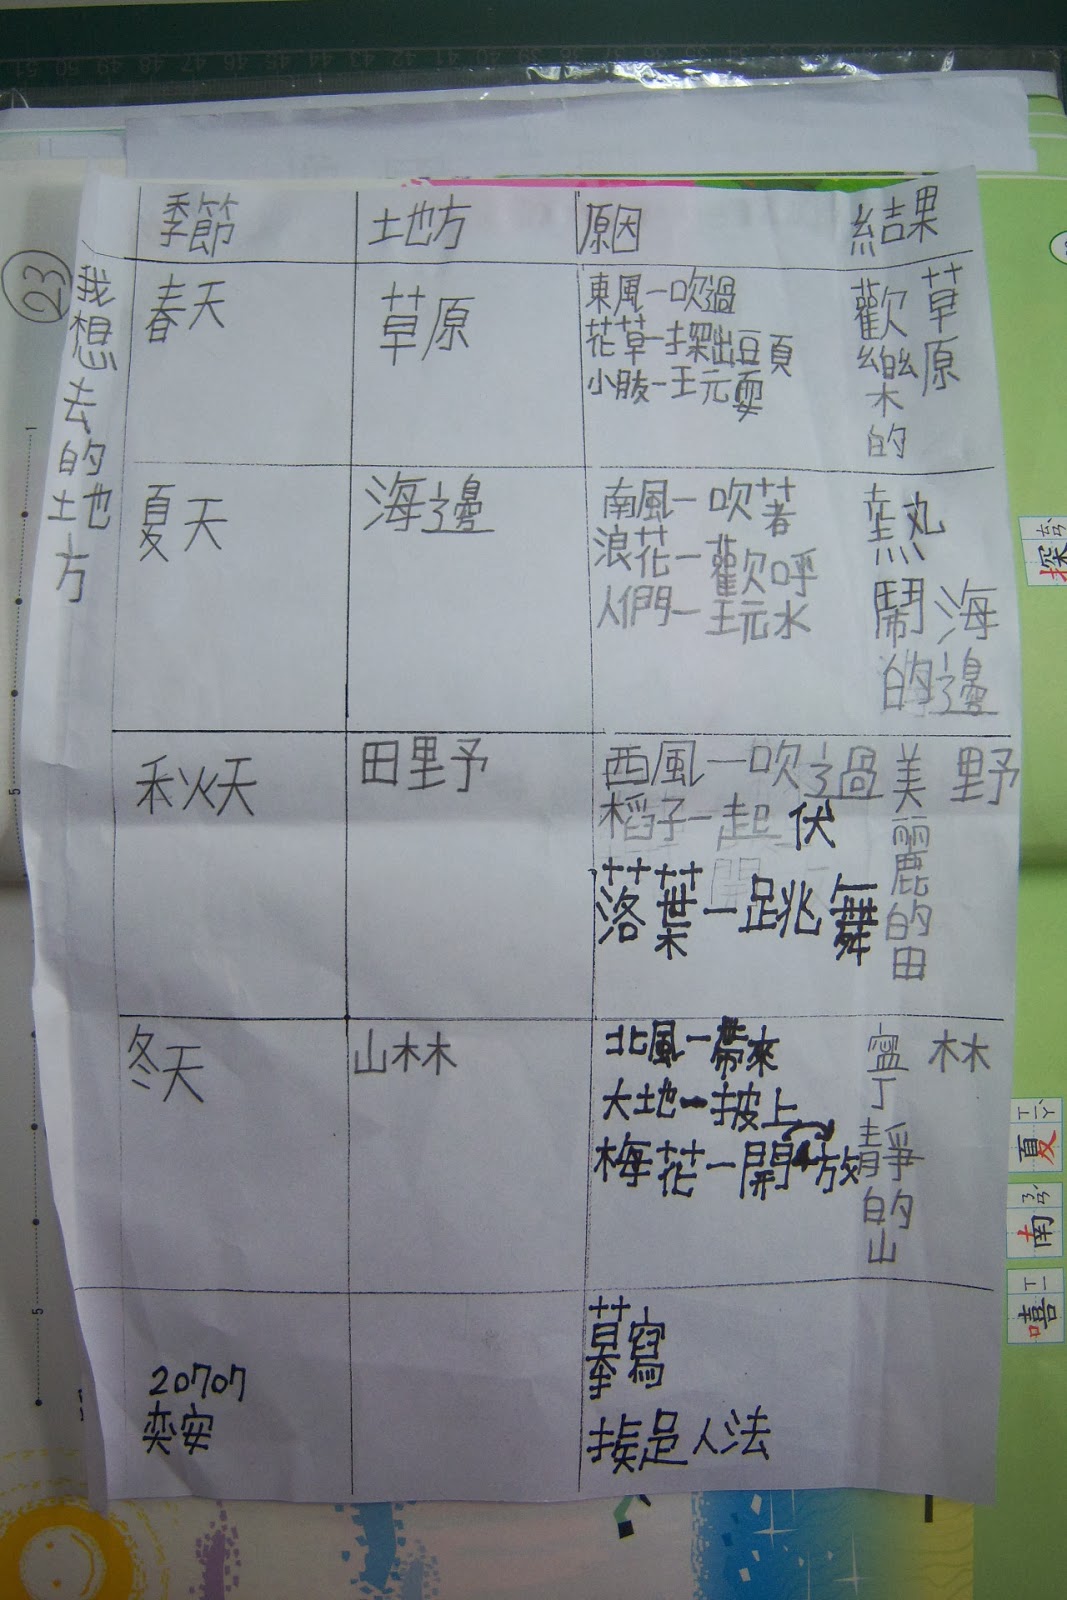 23
我想去的地方
季節 地方 原因 結果
春天 草原
東風—吹過
花草—探出頭
小朋友—玩耍
歡樂的
草原
夏天 海邊
南風—吹著
浪花—歡呼
人們—玩水
熱鬧的
海邊
秋天 田野
西風—吹過
稻子—起伏
落葉—跳舞
美麗的田
野
冬天 山林
北風—帶來
大地—披上
梅花—開放
寧靜的山
林
20707
奕安
摹寫
擬人法
探
夏 ㄒㄧㄚ
南 ㄋㄢ
嘻 ㄒㄧ
51 50 49 48 47 46
5
1
5